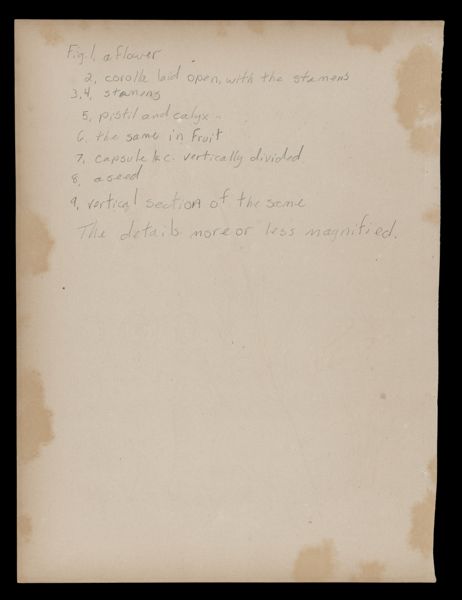 Fig. 1, a flower
2, corolla laid open, with the stamens
3,4, stamens
5, pistil and calyx -
6, the same in fruit
7, capsule &c. vertically divided
8, a seed
9, vertical section of the same
The details more or less magnified.